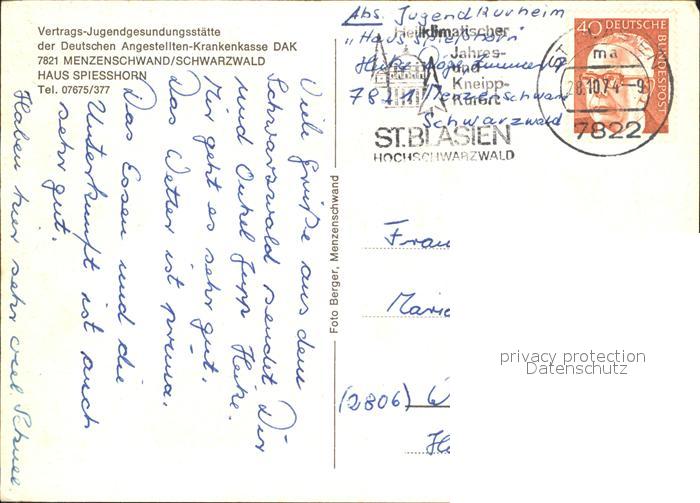 Vertrags-Jugendgesundungsstätte
der Deutschen Angestellten-Krankenkasse DAK
7821 MENZENSCHWAND/SCHWARZWALD
HAUS SPIESSHORN
Tel. 07675/377
Viele Grüße aus dem
Schwarzwald sendet Dir
und Onkel Jupp Heike.
Mir geht es sehr gut.
Das Wetter ist prima.
Das Essen und die
Unterkunft ist auch
sehr gut.
Haben hier sehr viel Schnee
Foto Berger, Menzenschwand
Abs. Jugendkurheim
"Haus Spießhorn"
Heike
7821 Menzenschwand
Schwarzwald
Heilklimatischer
Jahres-
und
Kneipp-
Kurort
ST. BLASIEN
HOCHSCHWARZWALD
40 DEUTSCHE BUNDESPOST
ma
28.10.74-9
7822
Frau
Marie
(2806)
privacy protection
Datenschutz